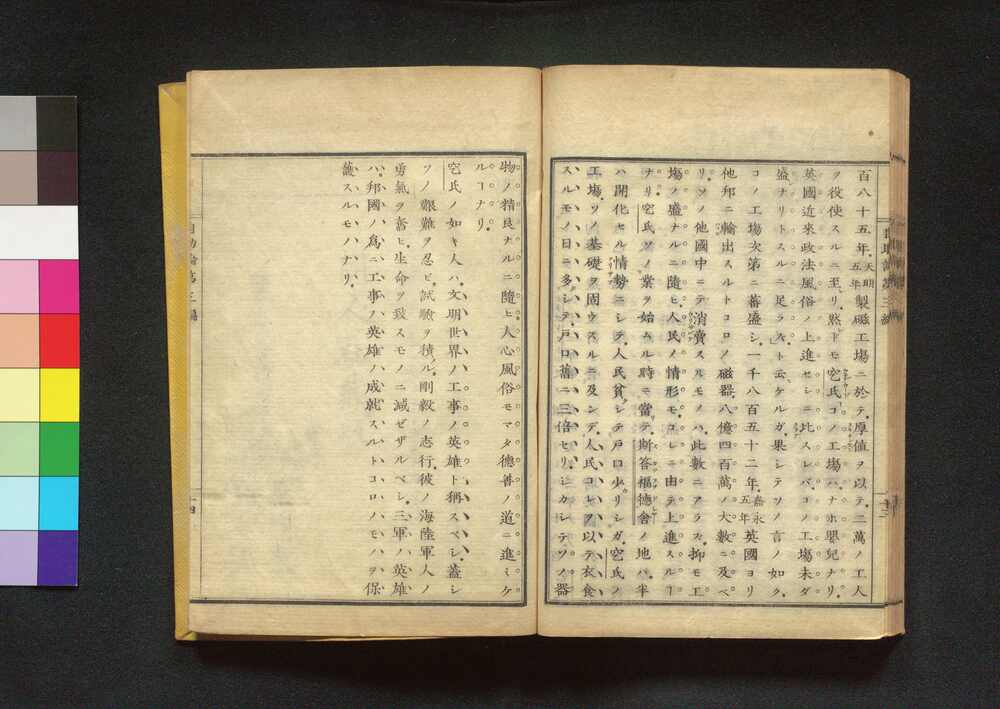 百八十五年、天明五年製磁工場ニ於テ、厚値ヲ以テ、二萬ノ工人
ヲ役使スルニ至リ、然トモ宅氏コノ工場ハ、ナホ嬰兒ナリ、
英國近來政法風俗ノ上進セシニ比スレバ、コノ工場未ダ
盛ナリトスルニ足ラズト云ケルガ、果シテソノ言ノ如ク、
コノ工場次第ニ蕃盛シ、一千八百五十二年、嘉永五年英國ヨリ
他邦ニ輸出スルトコロノ磁器、八億四百萬ノ大數ニ及ベ
リ、ソノ他國中ニテ消賣スルモノハ、此數ニアラズ、抑モ工
場ノ盛ナルニ隨ヒ、人民ノ情形モ、コレニ由テ上進スルー
ナリ、宅氏ソノ業ヲ始ムル時ニ當テ、斯答福德舍ノ地ハ、半
ハ開化セル情勢ニシテ、人民貧シテ戸口少リシガ、宅氏ノ
工場、ソノ基礎ヲ固ウスルニ及ンデ、人民コレヲ以テ衣食
スルモノ日ニ多シテ、戸口舊ニ三倍セリ、シカシテソノ器
物ノ精良ナルニ隨ヒ、人心風俗モマタ德善ノ道ニ進ミケ
ルコナリ、
宅氏ノ如キ人ハ、文明世界ノ工事ノ英雄ト稱スベシ、蓋シ
ソノ艱難ヲ忍ビ、試驗ヲ積ル、剛毅ノ志行、彼ノ海陸軍人ノ
勇氣ヲ奮ヒ、生命ヲ致スモノニ減ゼザルベシ、三軍ノ英雄
ハ、邦國ノ爲ニ、工事ノ英雄ノ成就スルトコロノモノヲ保
護スルモノナリ、
自助論第三編
十四